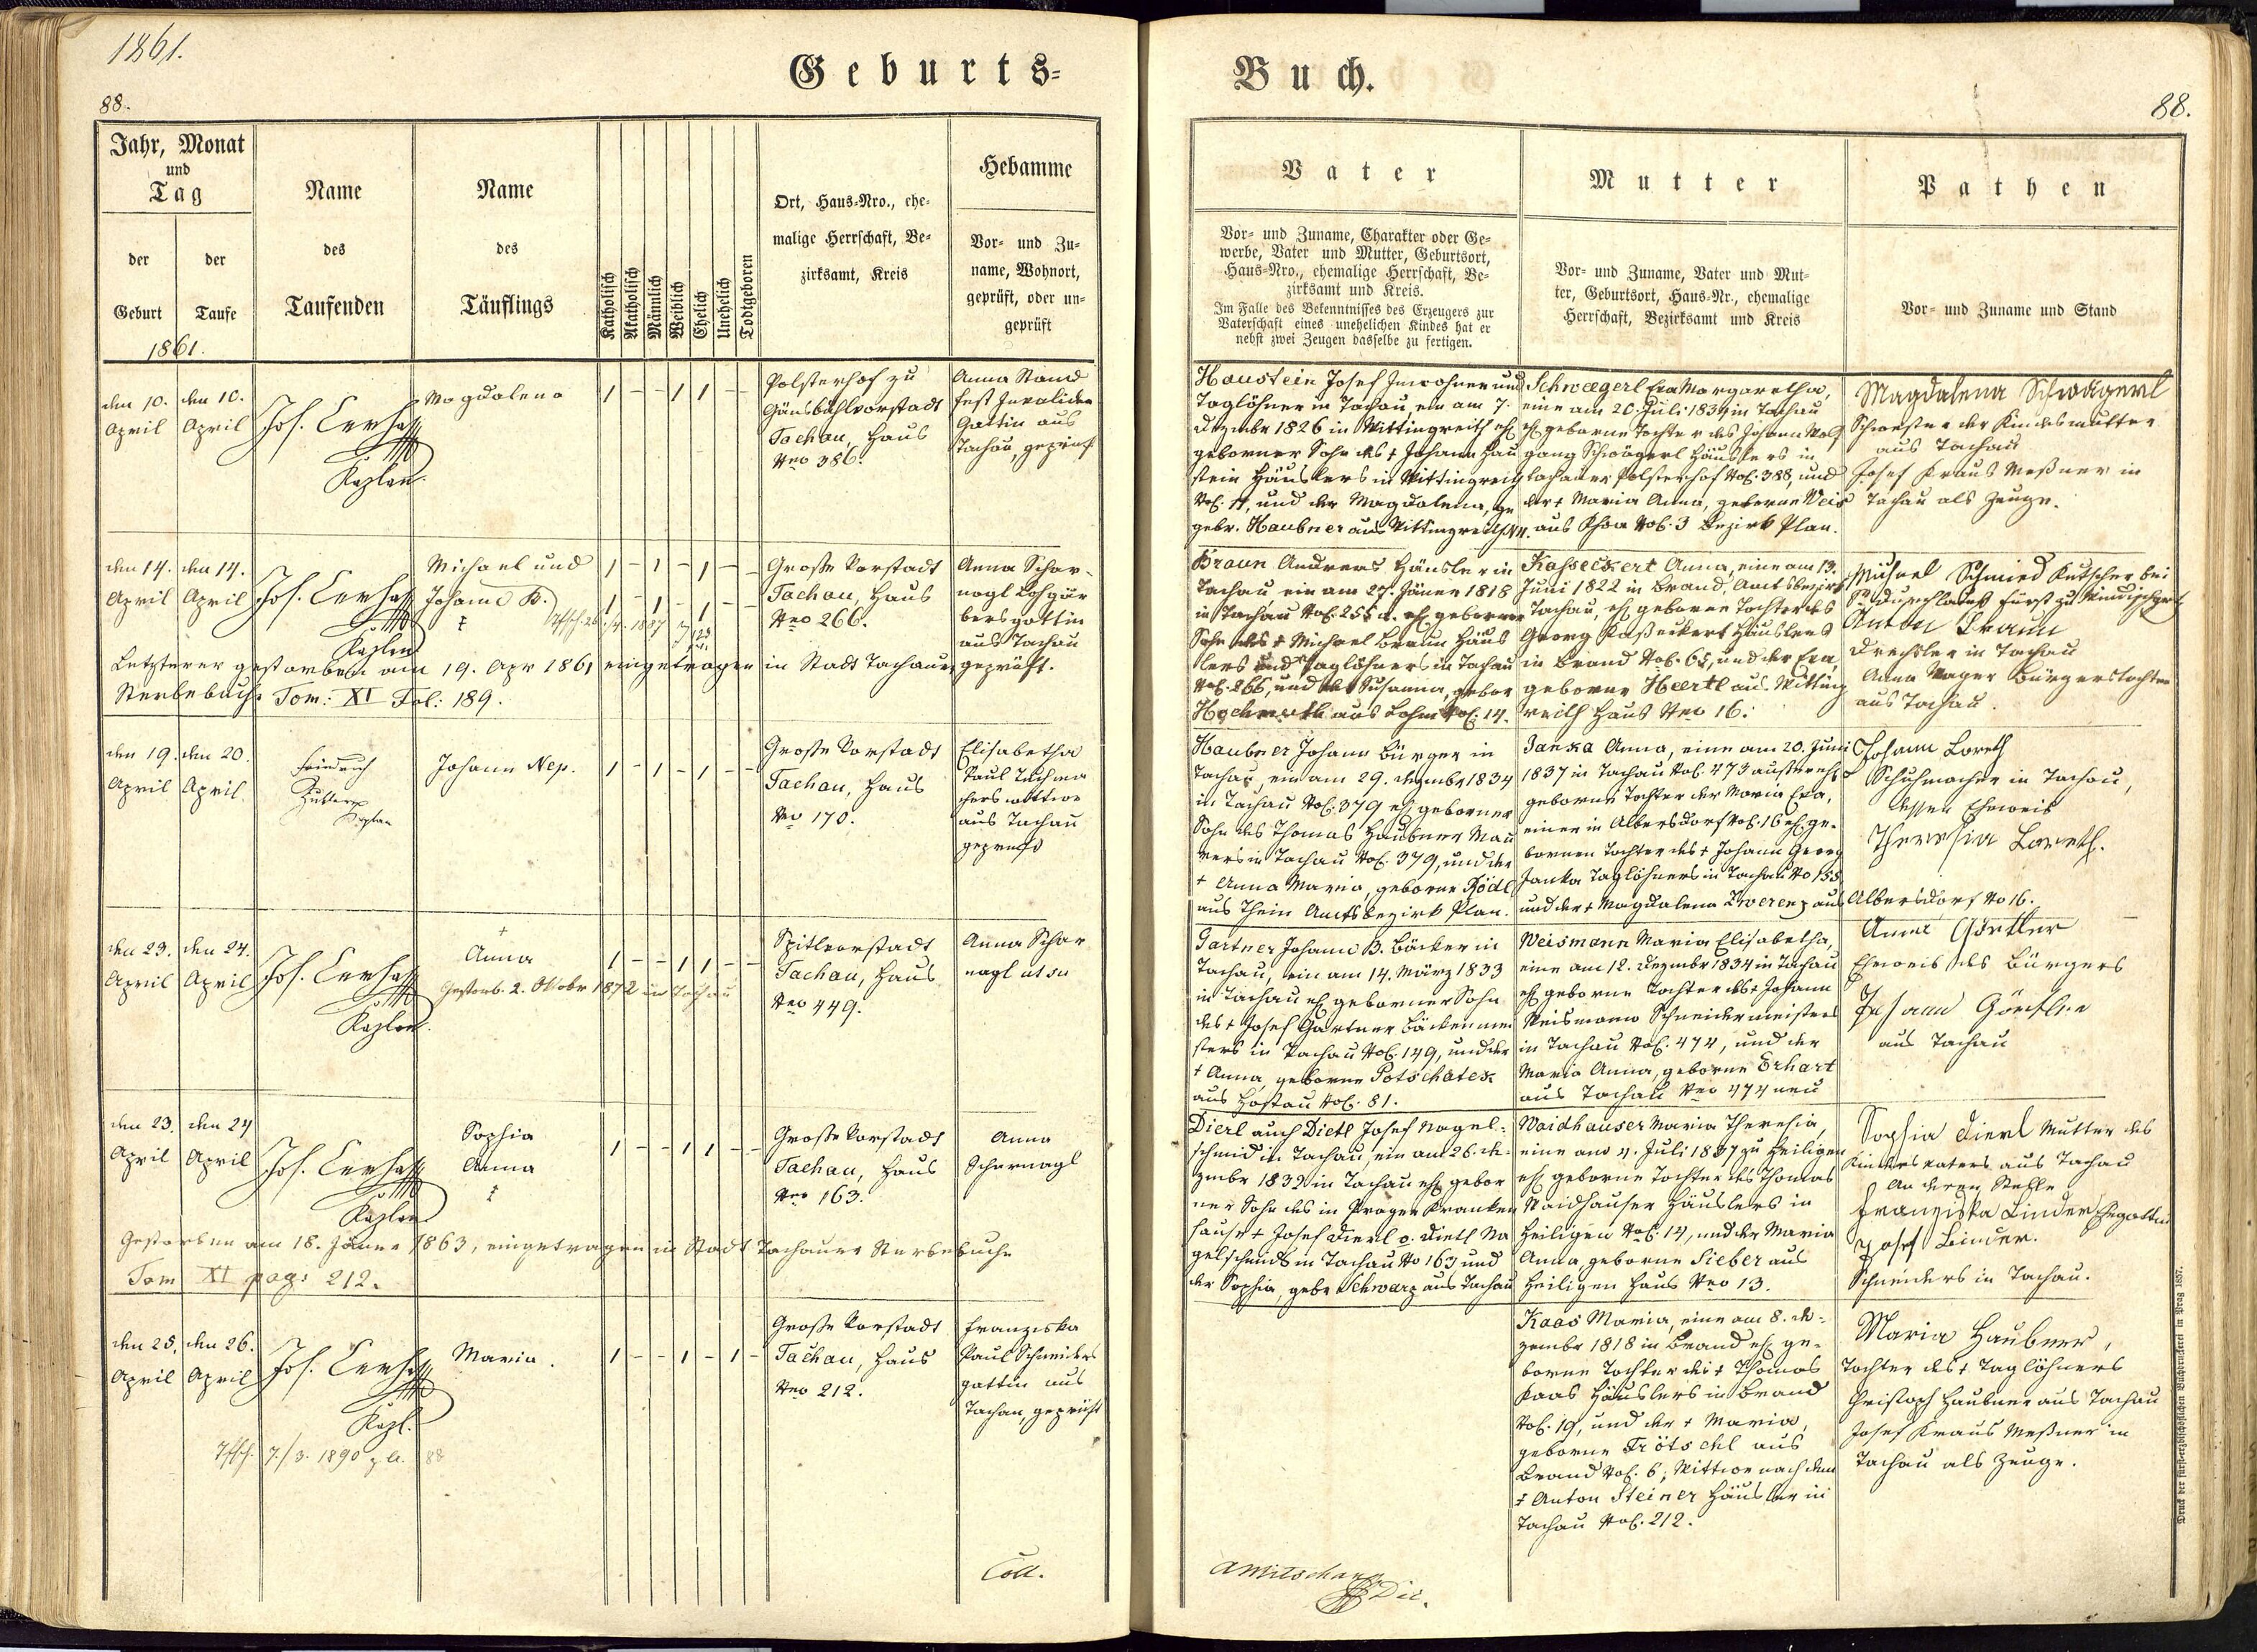 1861.
Geburts-
88.
Jahr, Monat
und
Tag
der
Geburt
der
Taufe
1861.
Name
des
Taufenden
Name
des
Täuflings
Katholisch
Akatholisch
Männlich
Weiblich
Ehelich
Unehelich
Todtgeboren
Ort, Haus-Nro., ehe-
malige Herrschaft, Be-
zirksamt, Kreis
Hebamme
Vor- und Zu-
name, Wohnort,
geprüft, oder un-
geprüft
den 10.
April
den 10.
April
Jos. Cerha
Kaplan.
Magdalena
1 - - 1 1 - -
Polsterhof zu
Gänsbühlvorstadt
Tachau, Haus
Nro 386.
Anna Stand
fest Invaliden
Gattin aus
Tachau, geprüft
den 14.
April
den 14.
April
Jos. Cerha
Kaplan
Michael und
Johann B.
1 - 1 - 1 - -
1 - 1 - 1 - -
Große Vorstadt
Tachau, Haus
Nro 266.
Anna Schar-
nagl Lohgär
bersgattin
aus Tachau
geprüft.
Letzterer gestorben am 19. Apr 1861 eingetragen in Stadt Tachauer
Sterbebuche Tom: XI Fol: 189.
den 19.
April
den 20.
April.
Friedrich
Kaplan
Johann Nep.
1 - 1 - 1 - -
Große Vorstadt
Tachau, Haus
Nro 170.
Elisabetha
Paul Tuchma
chers wittwe
aus Tachau
geprüft
den 23.
April
den 24.
April
Jos. Cerha
Kaplan.
Anna
1 - - 1 1 - -
Gestorb. 2. Oktober 1872 in Tachau
Spitlvorstadt
Tachau, Haus
Nro 449.
Anna Schar
nagl ut su
den 23.
April
den 24
April
Jos. Cerha
Kaplan
Sophia
Anna
1 - - 1 1 - -
Große Vorstadt
Tachau, Haus
Nro 163.
Anna
Scharnagl
Gestorben am 18. Jänner 1863, eingetragen in Stadt Tachauer Sterbebuche
Tom XI pag: 212.
den 25.
April
den 26.
April
Jos. Cerha
Kapl.
Maria.
1 - - 1 - 1 -
Große Vorstadt
Tachau, Haus
Nro 212.
Franziska
Paul Schneiders
gattin aus
Tachau, geprüft
7./3. 1890
Coll.
Buch.
88.
Vater
Vor- und Zuname, Charakter oder Ge-
werbe, Vater und Mutter, Geburtsort,
Haus-Nro., ehemalige Herrschaft, Be-
zirksamt und Kreis.
Im Falle des Bekenntnisses des Erzeugers zur
Vaterschaft eines unehelichen Kindes hat er
nebst zwei Zeugen dasselbe zu fertigen.
Mutter
Vor- und Zuname, Vater und Mut-
ter, Geburtsort, Haus-Nr., ehemalige
Herrschaft, Bezirksamt und Kreis
Pathen
Vor- und Zuname und Stand
Haustein Josef Inwohner und
Taglöhner in Tachau, ein am 7.
Dezember 1826 in Wittingreith ehl
geborner Sohn des + Johann Hau
stein Häuslers in Wittingreith
No. 11, und der Magdalena, ge
gebr. Haubner aus Wittingreith
Schwægerl Eva Margaretha,
eine am 20. Juli 1834 in Tachau
ehl geborne Tochter des Johann Wolf
gang Schwägerl Häuslers in
Tachauer Polsterhof No. 388, und
der + Maria Anna, geborne Weis
aus Khoa No. 3 Bezirk Plan.
Magdalena Schwägerl
Schwester der Kindesmutter
aus Tachau
Josef Kraus Meßner in
Tachau als Zeuge.
Braun Andreas Häusler in
Tachau ein am 27. Jänner 1818
in Tachau No. 255 a. ehl geborner
Sohn des + Michael Braun Häus
lers und Taglöhners in Tachau
No. 266, und der Susanna, gebor
Hochmuth aus Lohm No. 14.
Kasseckert Anna, eine am 13.
Juni 1822 in Brand, Amtsbezirk
Tachau, ehl geborne Tochter des
Georg Kaßeckert Häuslers
in Brand No. 65, und der Eva,
geborne Heertl aus Witting
reith Haus Nro 16.
Michael Schmied Kutscher bei
Sr Durchlaucht Fürst zu Windischgrätz
Anton Braun
Drechsler in Tachau
Anna Mayer Bürgerstochter
aus Tachau.
Haubner Johann Bürger in
Tachau, ein am 29. Dezember 1834
in Tachau No. 379 ehl geborner
Sohn des Thomas Haubner Mau
rers in Tachau No. 379, und der
+ Anna Maria, geborne Ködl
aus Thein Amtsbezirk Plan.
Janka Anna, eine am 20. Juni
1837 in Tachau No. 473 außerehl
geborne Tochter der Maria Eva,
einer in Albersdorf No. 16 ehl ge-
bornen Tochter des + Johann Georg
Janka Taglöhners in Tachau No 155
und der + Magdalena Zwerenz aus
Albersdorf No 16.
Johann Loreth
Schuhmacher in Tachau,
dessen Eheweib
Theresia Loreth.
Gartner Johann B. Bäcker in
Tachau, ein am 14. März 1833
in Tachau ehl geborner Sohn
des + Josef Gartner Bäckermei
sters in Tachau No. 149, und der
+ Anna, geborne Potschatek
aus Hostau No. 81.
Weismann Maria Elisabetha,
eine am 12. Dezember 1834 in Tachau
ehl geborne Tochter des + Johann
Weismann Schneidermeisters
in Tachau No. 474, und der
Maria Anna, geborne Erhart
aus Tachau Nro 474 neu
Anna Görtler
Eheweib des Bürgers
Johann Görtler
aus Tachau
Dierl auch Dietl Josef Nagel-
schmid in Tachau, ein am 26. De-
zember 1832 in Tachau ehl gebor
ner Sohn des in Prager Kranken
hause + Josef Dierl o. Dietl Na
gelschmids in Tachau No 163 und
der Sophia, gebr Schwarz aus Tachau
Waidhauser Maria Theresia,
eine am 4. Juli 1837 zu Heiligen
ehl geborne Tochter des Thomas
Waidhauser Häuslers in
Heiligen No. 14, und der Maria
Anna, geborne Sieber aus
Heiligen Haus Nro 13.
Sophia Dierl Mutter des
Kindesvaters aus Tachau
An deren Stelle
Franziska Binder Ehegattin
Josef Binder.
Schneiders in Tachau.
Kaas Maria, eine am 8. De-
zember 1818 in Brand ehl ge-
borne Tochter des + Thomas
Kaas Häuslers in Brand
No. 19, und der + Maria,
geborne Trötschl aus
Brand No. 6, Wittwe nach dem
+ Anton Steiner Häusler in
Tachau No. 212.
Maria Haubner,
Tochter des + Taglöhners
Christoph Haubner aus Tachau
Josef Kraus Meßner in
Tachau als Zeuge.
Druck der fürsterzbischöflichen Buchdruckerei in Prag 1857.